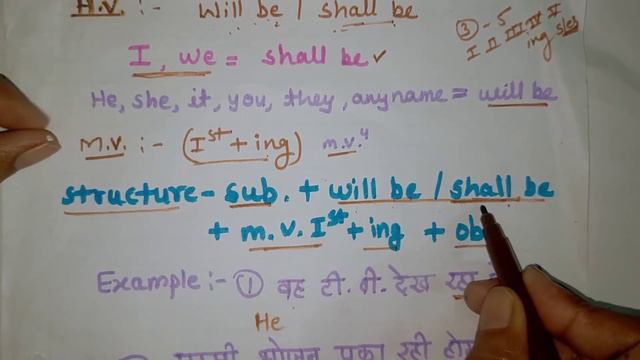 H.V. :- Will be / shall be
③ - 5
I II III IV V
ing s/es
I, we = shall be ✓
He, she, it, you, they, anyname = will be
M.V. :- (Iˢᵗ + ing) m.v.⁴
structure - sub. + will be / shall be
+ m.v. Iˢᵗ + ing + ob
Example :- ① वह टी. वी. देख रहा
He
भोजन पका रही